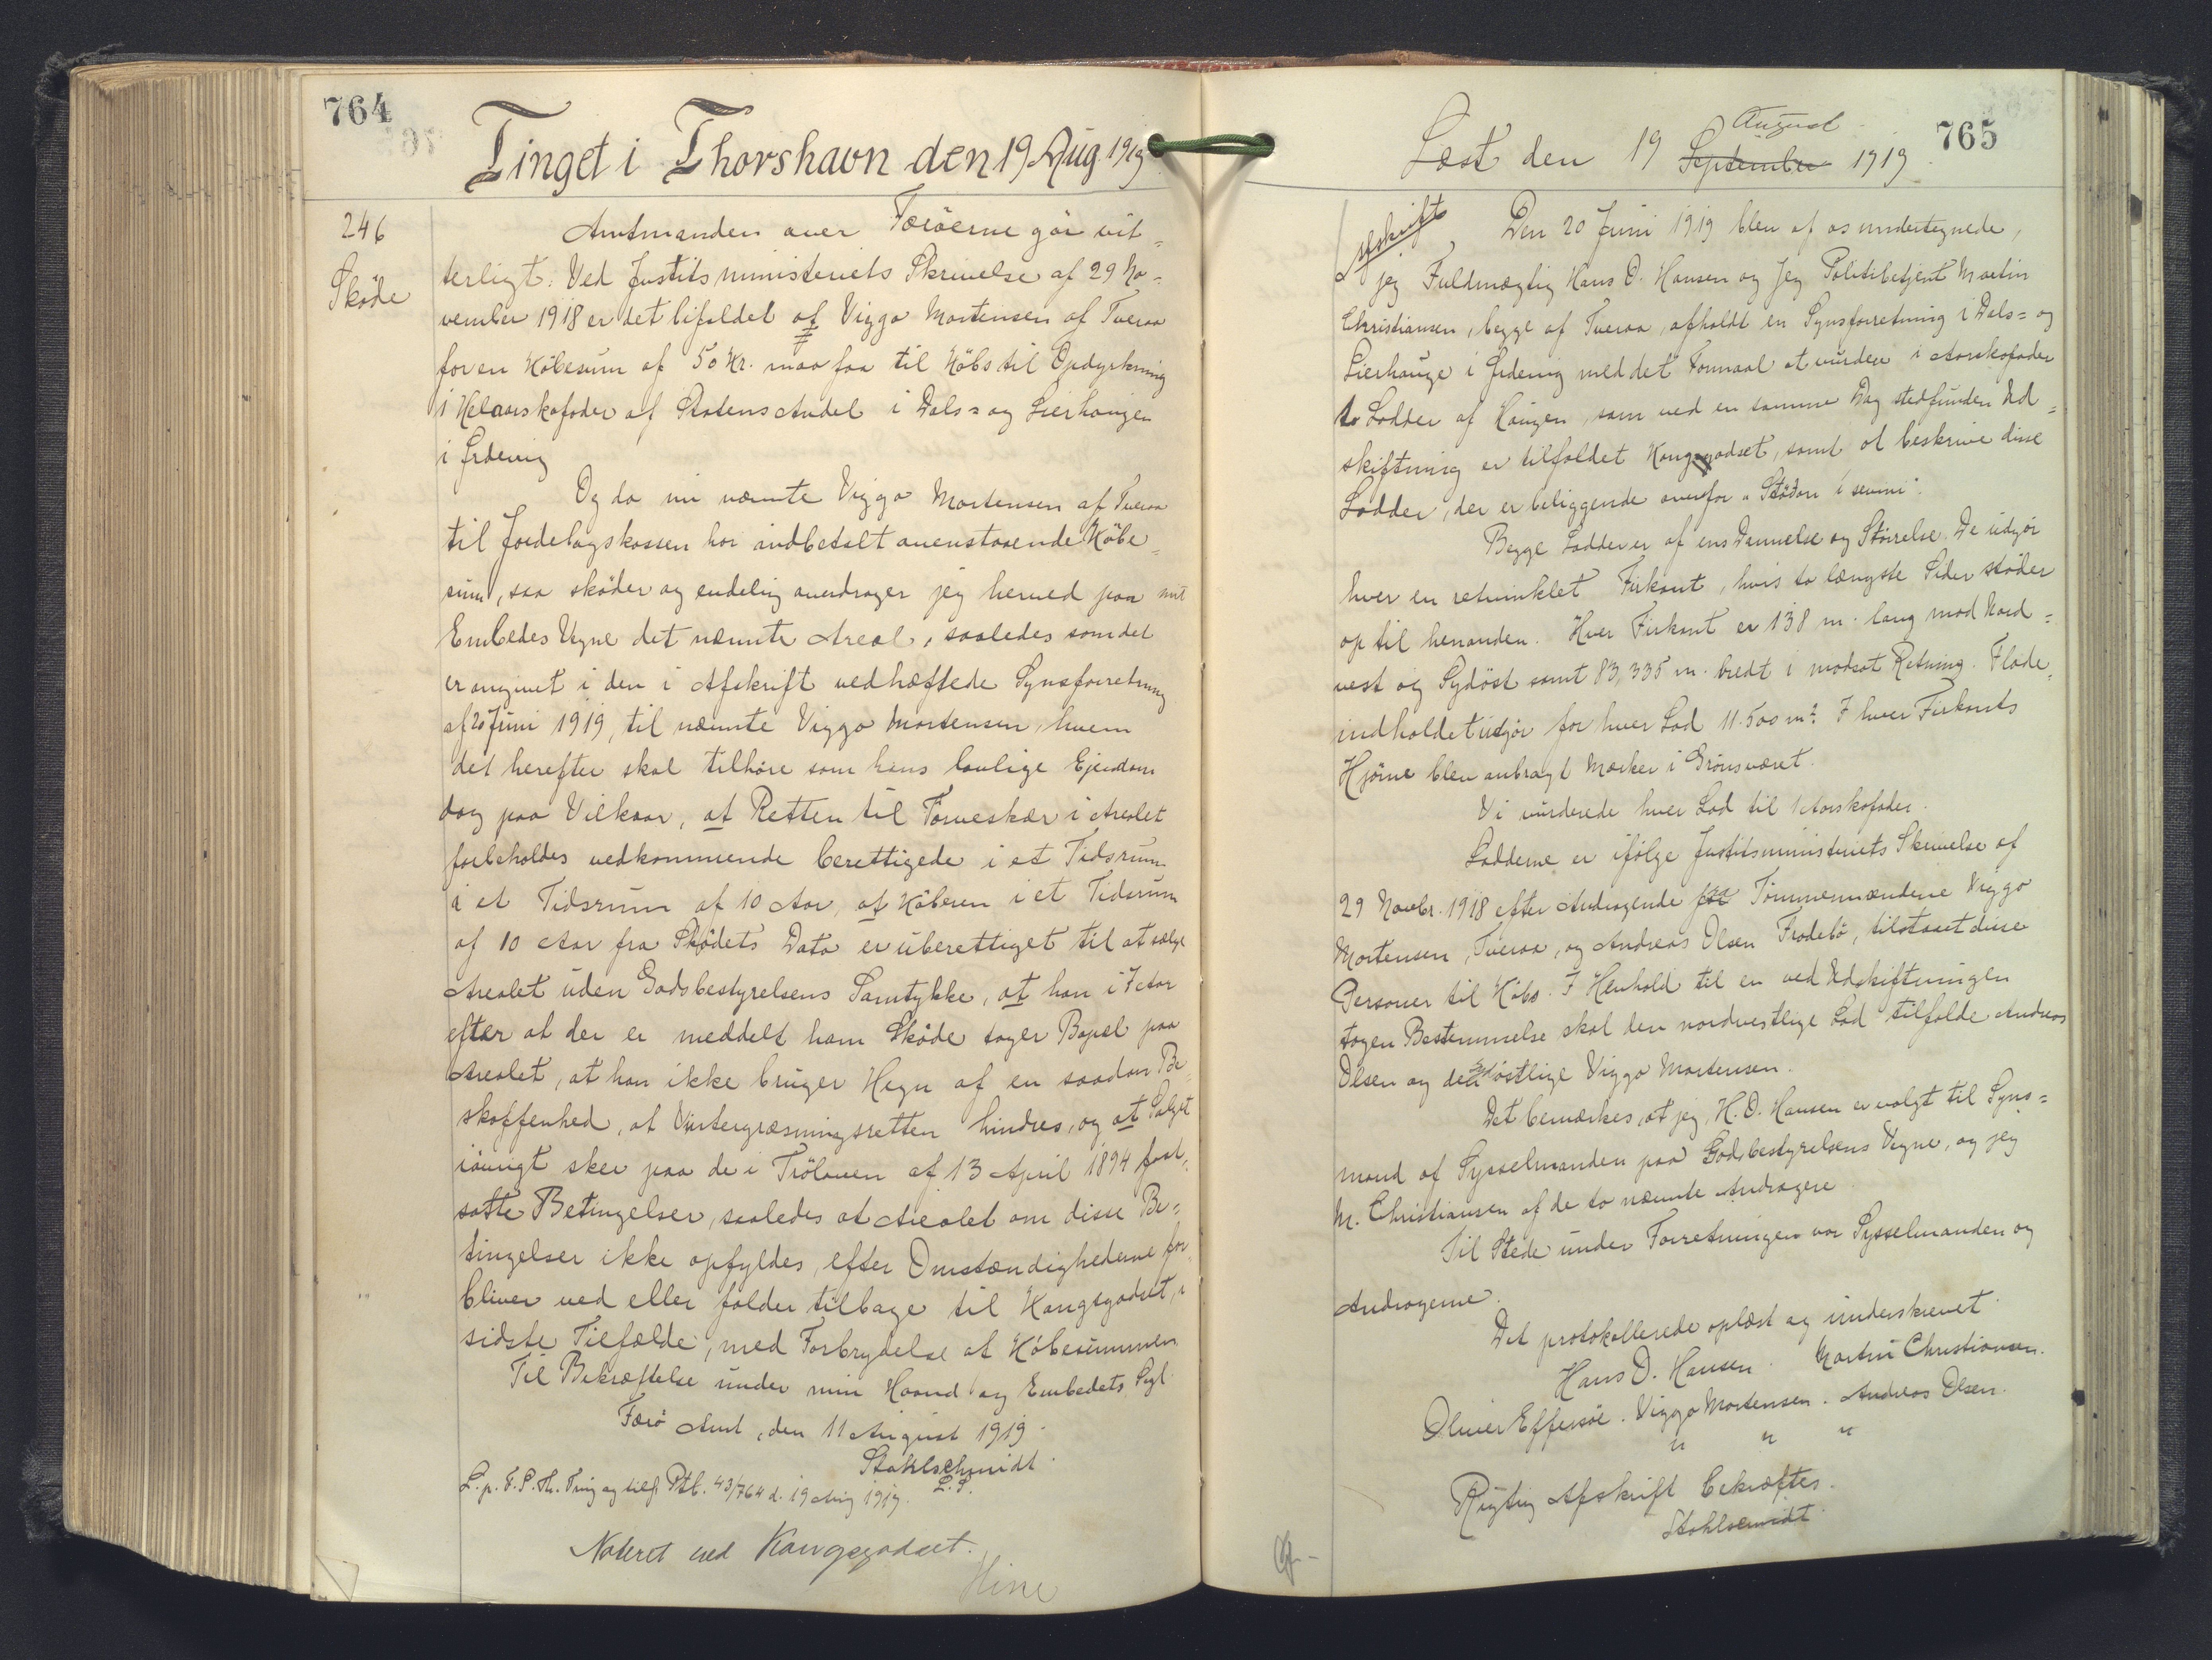 764
Tinget i Thorshavn den 19 Aug. 1919
246
Sköde
Amtmanden over Færöerne gör vit=
terligt: Ved Justitsministeriets Skrivelse af 29 No=
vember 1918 er det bifaldet at Viggo Mortensen af Tveraa
for en Köbesum af 50 Kr. maa faa til Köbs til Opdyrkning
1 Helaarskofoder af Statens Andel i Dals= og Lierhaugen
i Ørdevig
Og da nu nævnte Viggo Mortensen af Tveraa
til Jordebogskassen har indbetalt ovenstaaende Köbe=
sum, saa sköder og endelig overdrager jeg herved paa mit
Embedes Vegne det nævnte Areal, saaledes som det
er angivet i den i Afskrift vedhæftede Synsforretning
af 20 Juni 1919, til nævnte Viggo Mortensen, hvem
det herefter skal tilhöre som hans lovlige Ejendom
dog paa Vilkaar, at Retten til Törveskær i Arealet
forbeholdes vedkommende berettigede i et Tidsrum
i et Tidsrum af 10 Aar, at Köberen i et Tidsrum
af 10 Aar fra Sködets Dato er uberettiget til at sælge
Arealet uden Godsbestyrelsens Samtykke, at han i 7 Aar
efter at der er meddelt ham Sköde tager Bopæl paa
Arealet, at han ikke bruger Hegn af en saadan Be=
skaffenhed, at Vintergræsningsretten hindres, og at Salget
iövrigt sker paa de i Trölöven af 13 April 1894 fast=
satte Betingelser, saaledes at Arealet om disse Be=
tingelser ikke opfyldes, efter Omstændighederne for=
bliver ved eller falder tilbage til Kongsgodset, i
sidste Tilfælde, med Forbrydelse af Köbesummen
Til Bekræftelse under min Haand og Embedets Segl
Færö Amt, den 11 August 1919.
Stahlschmidt.
L. S.
L. p. F. S. Th. Ting og tilf Ptk. 43/764 d. 19 Aug 1919.
Noteret ved Kongsgodset.
765
Læst den 19 September August 1919
Afskrift
Den 20 Juni 1919 blev af os undertegnede,
jeg Fuldmægtig Hans D. Hansen og jeg Politibetjent Martin
Christiansen, begge af Tveraa, afholdt en Synsforretning i Dals= og
Lierhauge i Ørdevig med det Formaal at vurdere i Aarskofoder
to Lodder af Haugen, som ved en samme Dag stedfunden Ud=
skiftning er tilfaldet Kongsgodset, samt at beskrive disse
Lodder, der er beliggende ovenfor "Stödon i
Begge Lodder er af ens Dannelse og Störrelse. De udgör
hver en retvinklet Firkant, hvis to længste Sider stöder
op til hinanden. Hver Firkant er 138 m. lang mod Nord=
vest og Sydöst samt 83,335 m. bredt i modsat Retning. Flade=
indholdet udgör for hver Lod 11.500 m². I hver Firkants
Hjörne blev anbragt Mærker i Grönsværet.
Vi vurderede hver Lod til 1 Aarskofoder.
Lodderne er ifölge Justitsministeriets Skrivelse af
29 Novbr. 1918 efter Andragende fra Tömmermændene Viggo
Mortensen, Tveraa, og Andreas Olsen Frodebö, tilstaaet disse
Personer til Köbs. I Henhold til en ved Udskiftningen
tagen Bestemmelse skal den nordvestlige Lod tilfalde Andreas
Olsen og den sydöstlige Viggo Mortensen.
Det bemærkes, at jeg, H. D. Hansen er valgt til Syns=
mand af Sysselmanden paa Godsbestyrelsens Vegne, og jeg
M. Christiansen af de to nævnte Andragere.
Til Stede under Forretningen var Sysselmanden og
Andragerne.
Det protokollerede oplæst og underskrevet
Hans D. Hansen. Martin Christiansen.
Oliver Effersöe. Viggo Mortensen. Andreas Olsen.
" " "
Rigtig Afskrift bekræftes.
Stahlschmidt